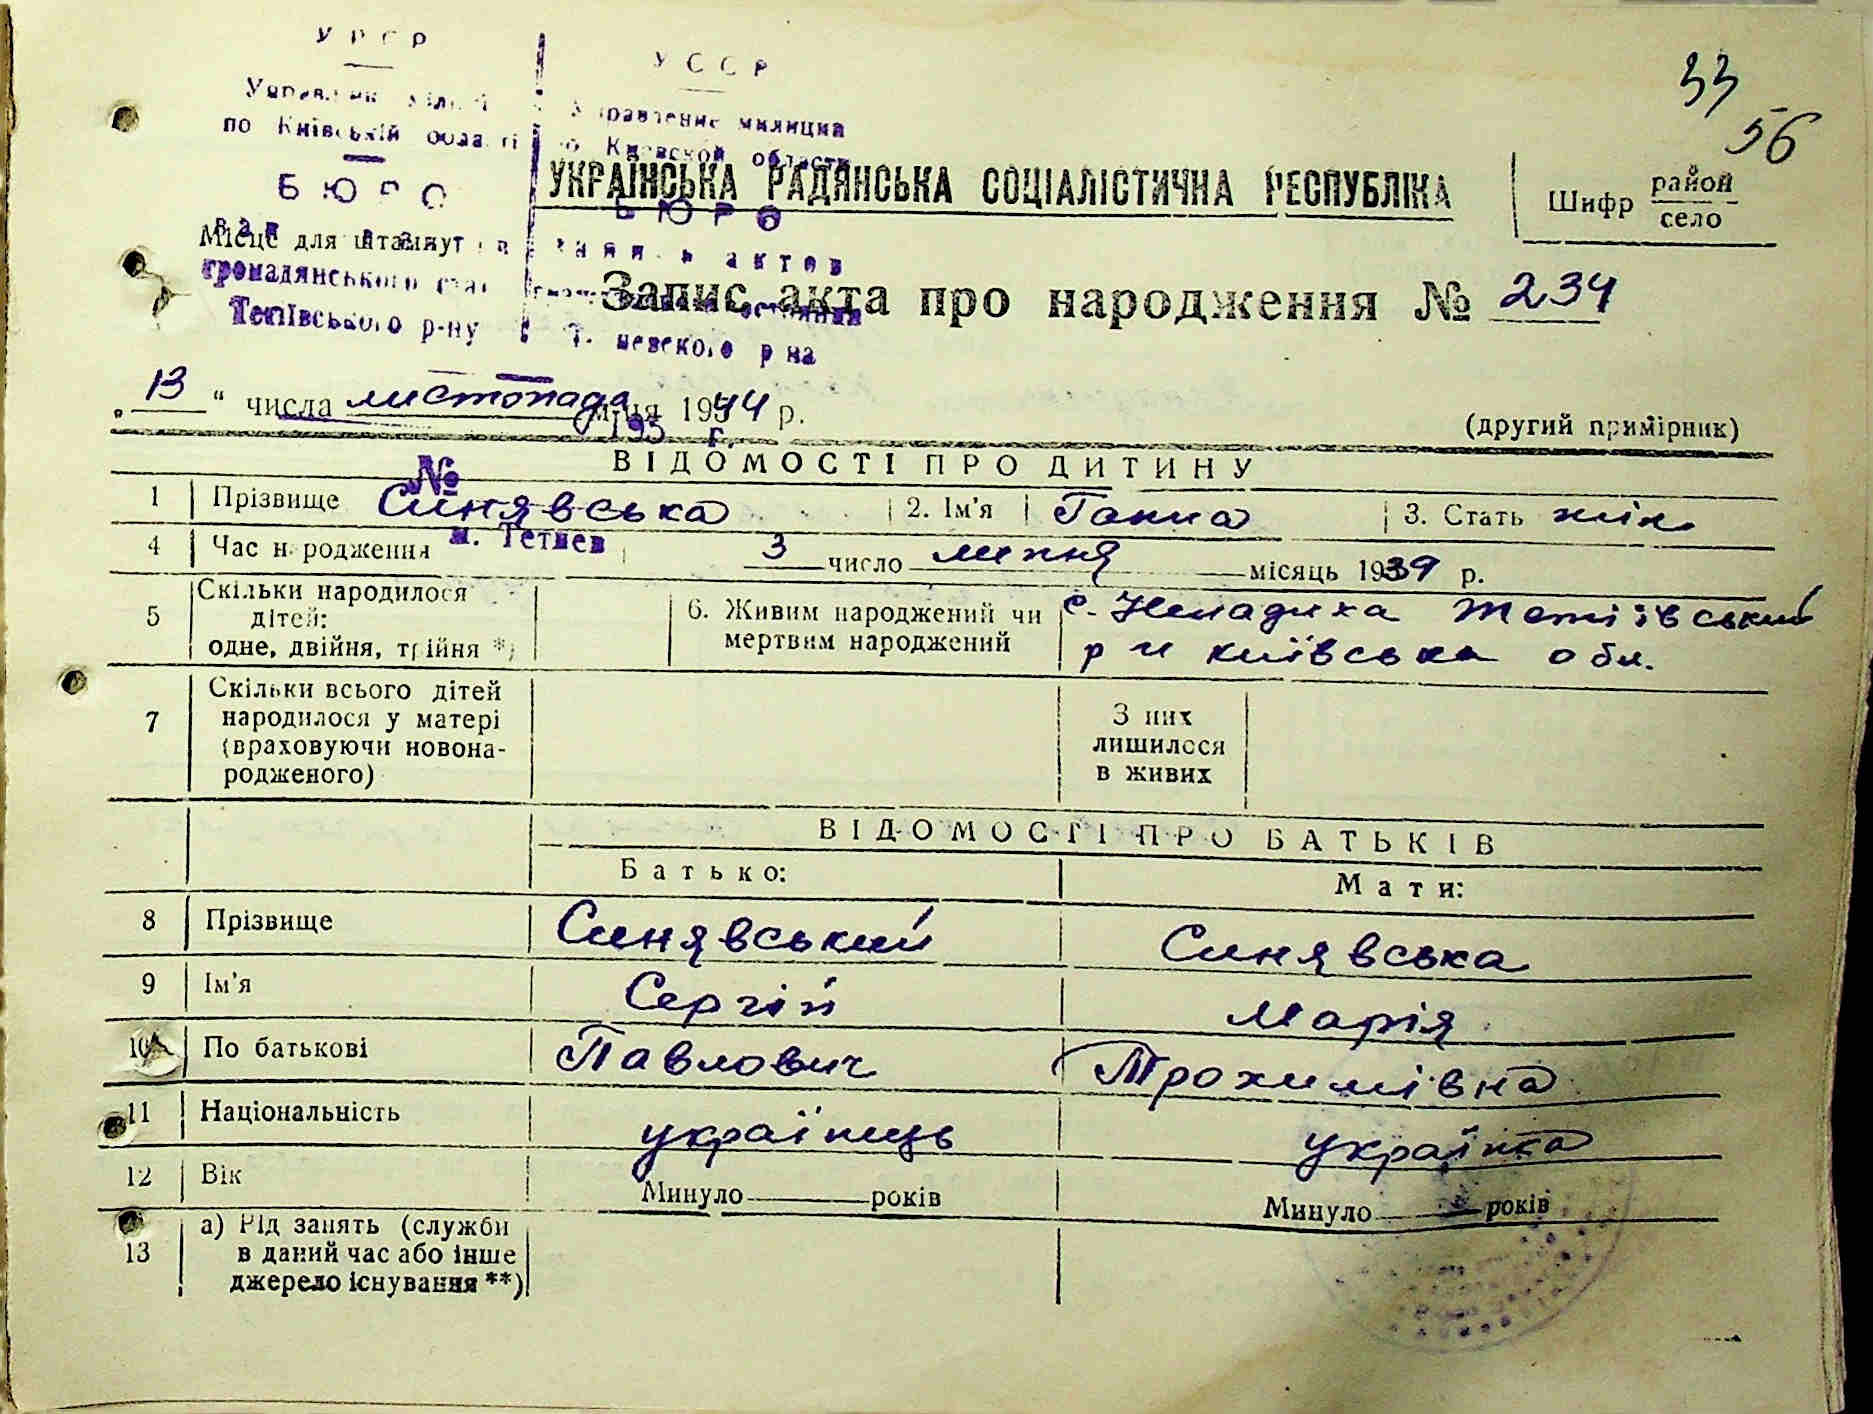 УРСР
УССР
33
56
по Київській області
Киевской области
БЮРО
БЮРО
УКРАЇНСЬКА РАДЯНСЬКА СОЦІАЛІСТИЧНА РЕСПУБЛІКА
Шифр район
село
Місце для штампу
актов
громадянського
Запис акта про народження № 234
р-ну
р на
„13“ числа листопада м-ця 1944 р.
195 г.
(другий примірник)
ВІДОМОСТІ ПРО ДИТИНУ
№
1 Прізвище Синявська 2. Ім'я Ганна 3. Стать жін
м. Тетиев
4 Час народження 3 число липня місяць 1939 р.
5 Скільки народилося дітей: одне, двійня, трійня *) 6. Живим народжений чи мертвим народжений
с. Ненадиха Тетіївський
р н київська обл.
7 Скільки всього дітей народилося у матері (враховуючи новонародженого) З них лишилося в живих
ВІДОМОСТІ ПРО БАТЬКІВ
Батько: Мати:
8 Прізвище Синявський Синявська
9 Ім'я Сергій Марія
10 По батькові Павлович Трохимівна
11 Національність українець українка
12 Вік Минуло років Минуло років
13 а) Рід занять (служби в даний час або інше джерело існування **)